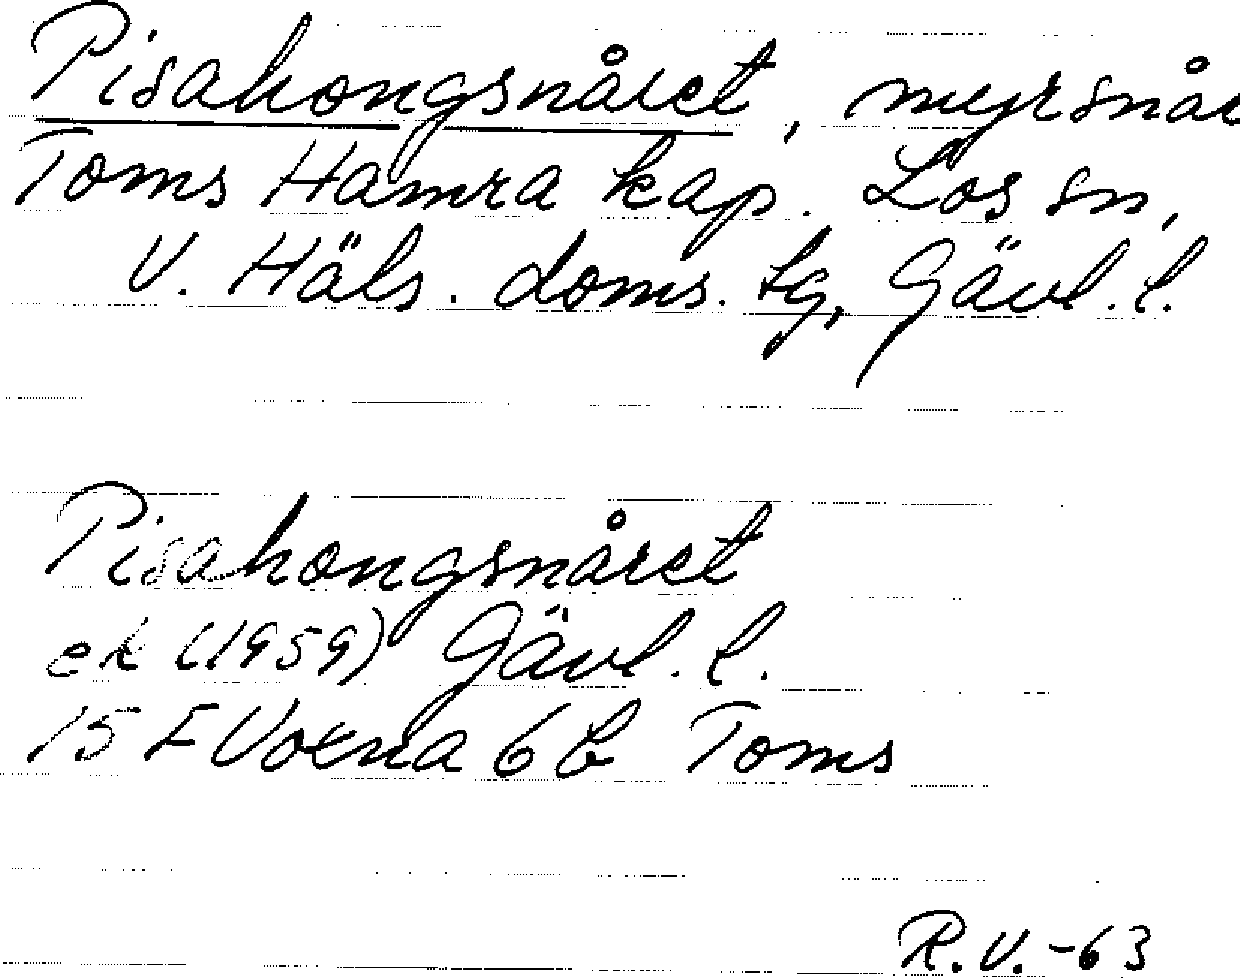 Pisahongsnåret, myrsnår
Toms Hamra kap. Los sn,
V. Häls. doms. tg, Gävl. l.
Pisahongsnåret
ek (1959) Gävl. l.
15 F Voxna 6 b Toms
R.V.-63